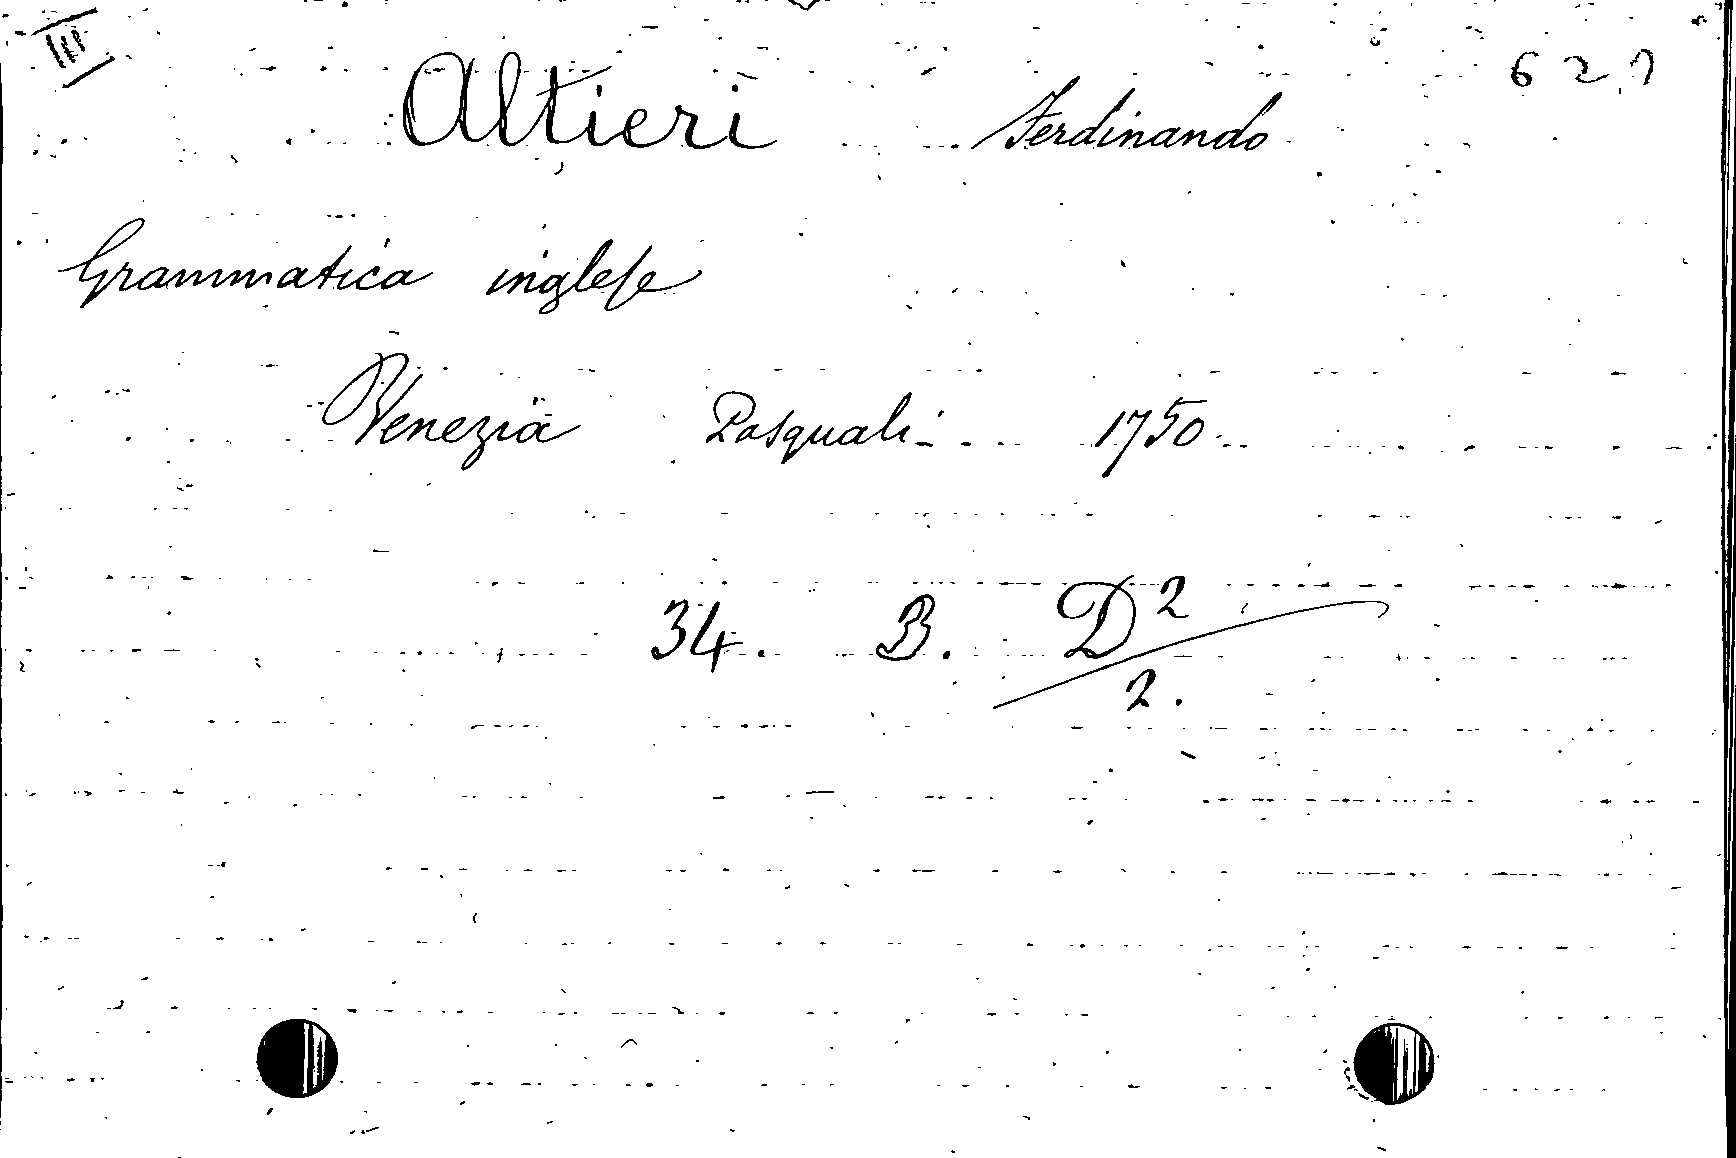 III 621
Altieri Ferdinando
Grammatica inglese
Venezia Pasquali 1750
34. B. D²/2.